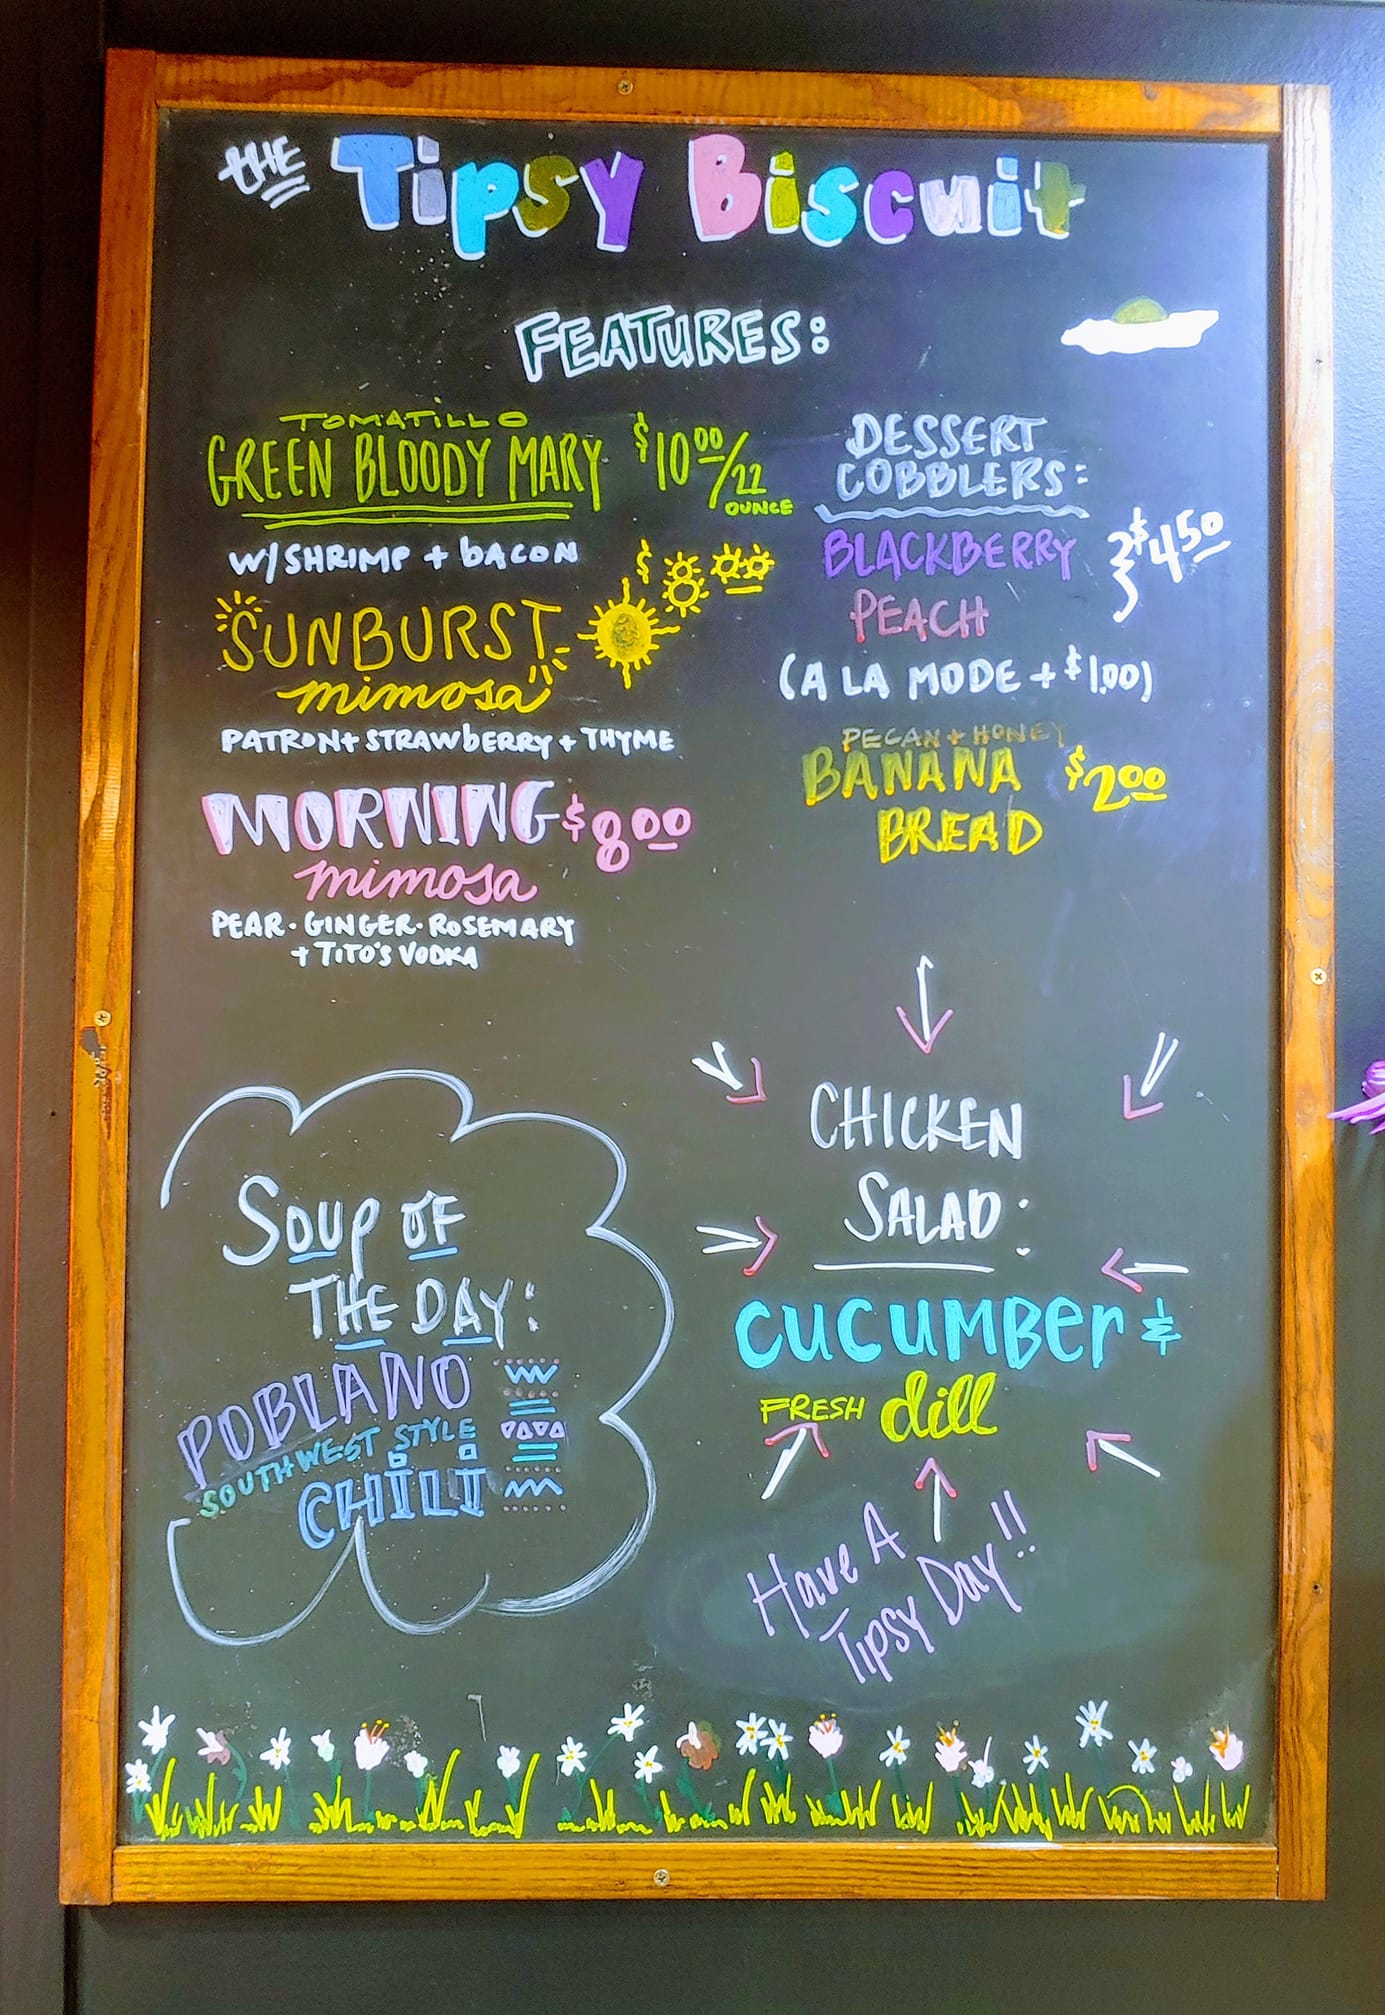 THE Tipsy Biscuit
FEATURES:
TOMATILLO
GREEN BLOODY MARY $10.00/22 OUNCE
W/SHRIMP + bACON
SUNBURST $8.00
mimosa
PATRON + STRAWbERRY + THYME
MORNING $8.00
mimosa
PEAR · GINGER · ROSEMARY
+ TITO'S VODKA
DESSERT
COBBLERS:
BLACKBERRY
PEACH
} $4.50
(A LA MODE + $1.00)
PECAN + HONEY
BANANA $2.00
BREAD
SOUP OF
THE DAY:
POBLANO
SOUTHWEST STYLE
CHILI
CHICKEN
SALAD:
CUCUMBEr &
FRESH dill
Have A
Tipsy Day!!